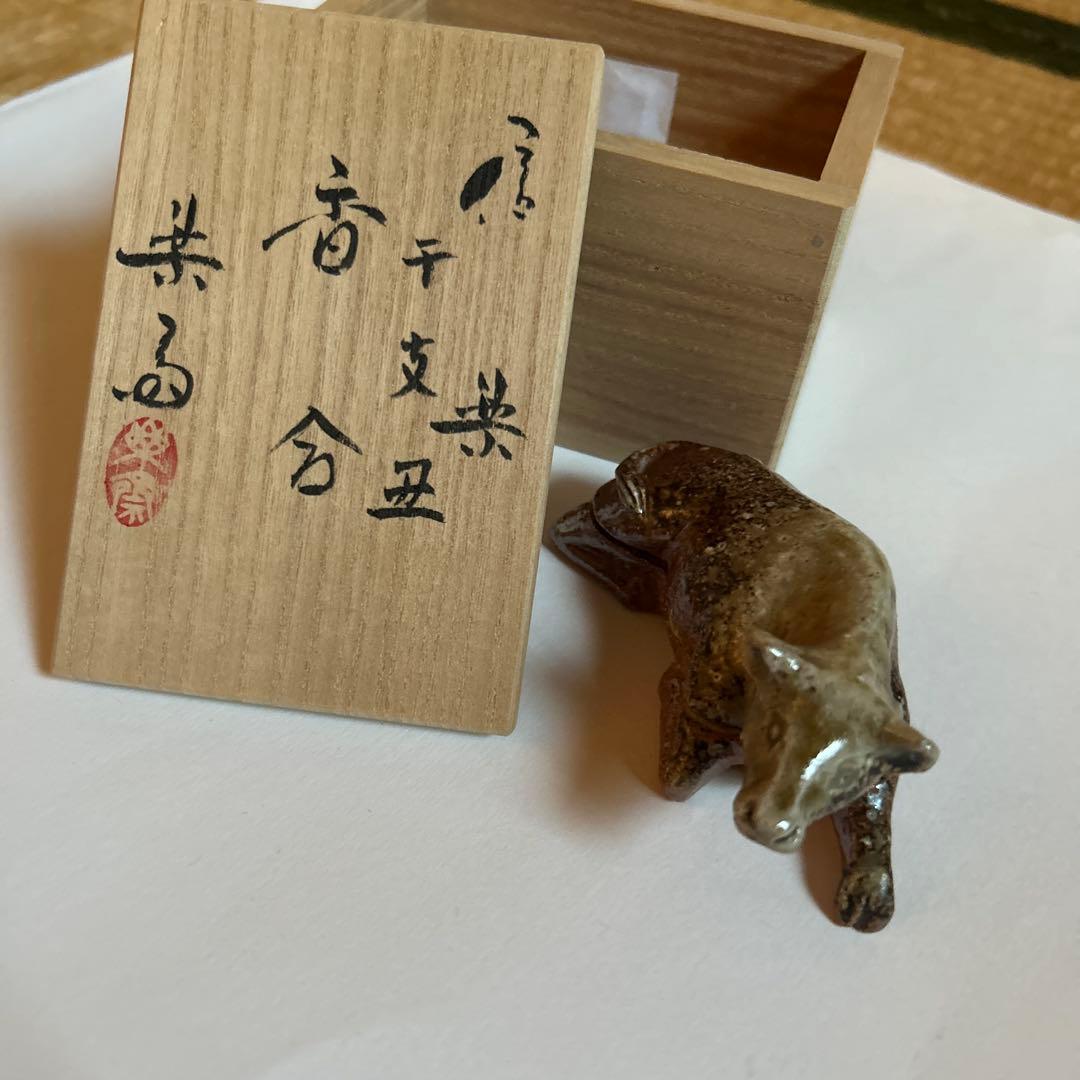 信楽
干支丑
香合
楽斎
楽斎